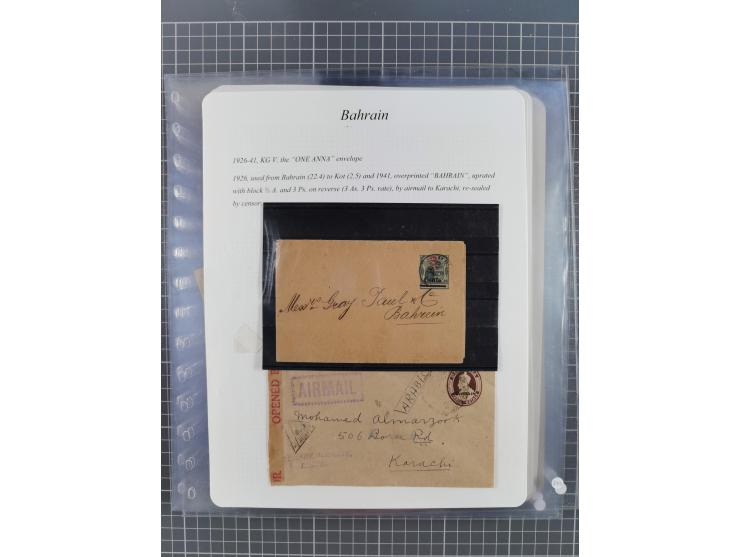 Bahrain
1926-41, KG V. the "ONE ANNA" envelope
1926, used from Bahrain (22.4) to Kot (2.5) and 1941, overprinted "BAHRAIN", uprated
with block ½ A. and 3 Ps. on reverse (3 As. 3 Ps. rate), by airmail to Karachi, re-sealed
by censor.
Messrs Gray Paul & Co
Bahrein
OPENED
AIRMAIL
ARABIC
Mohamed Almarzook
506 Bora Rd.
Karachi